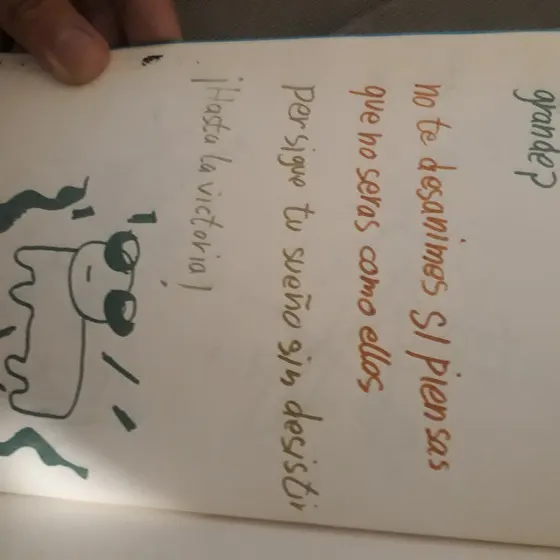 grande?
no te desanimes si piensas
que no seras como ellos
persigue tu sueño sin desistir
¡Hasta la victoria!